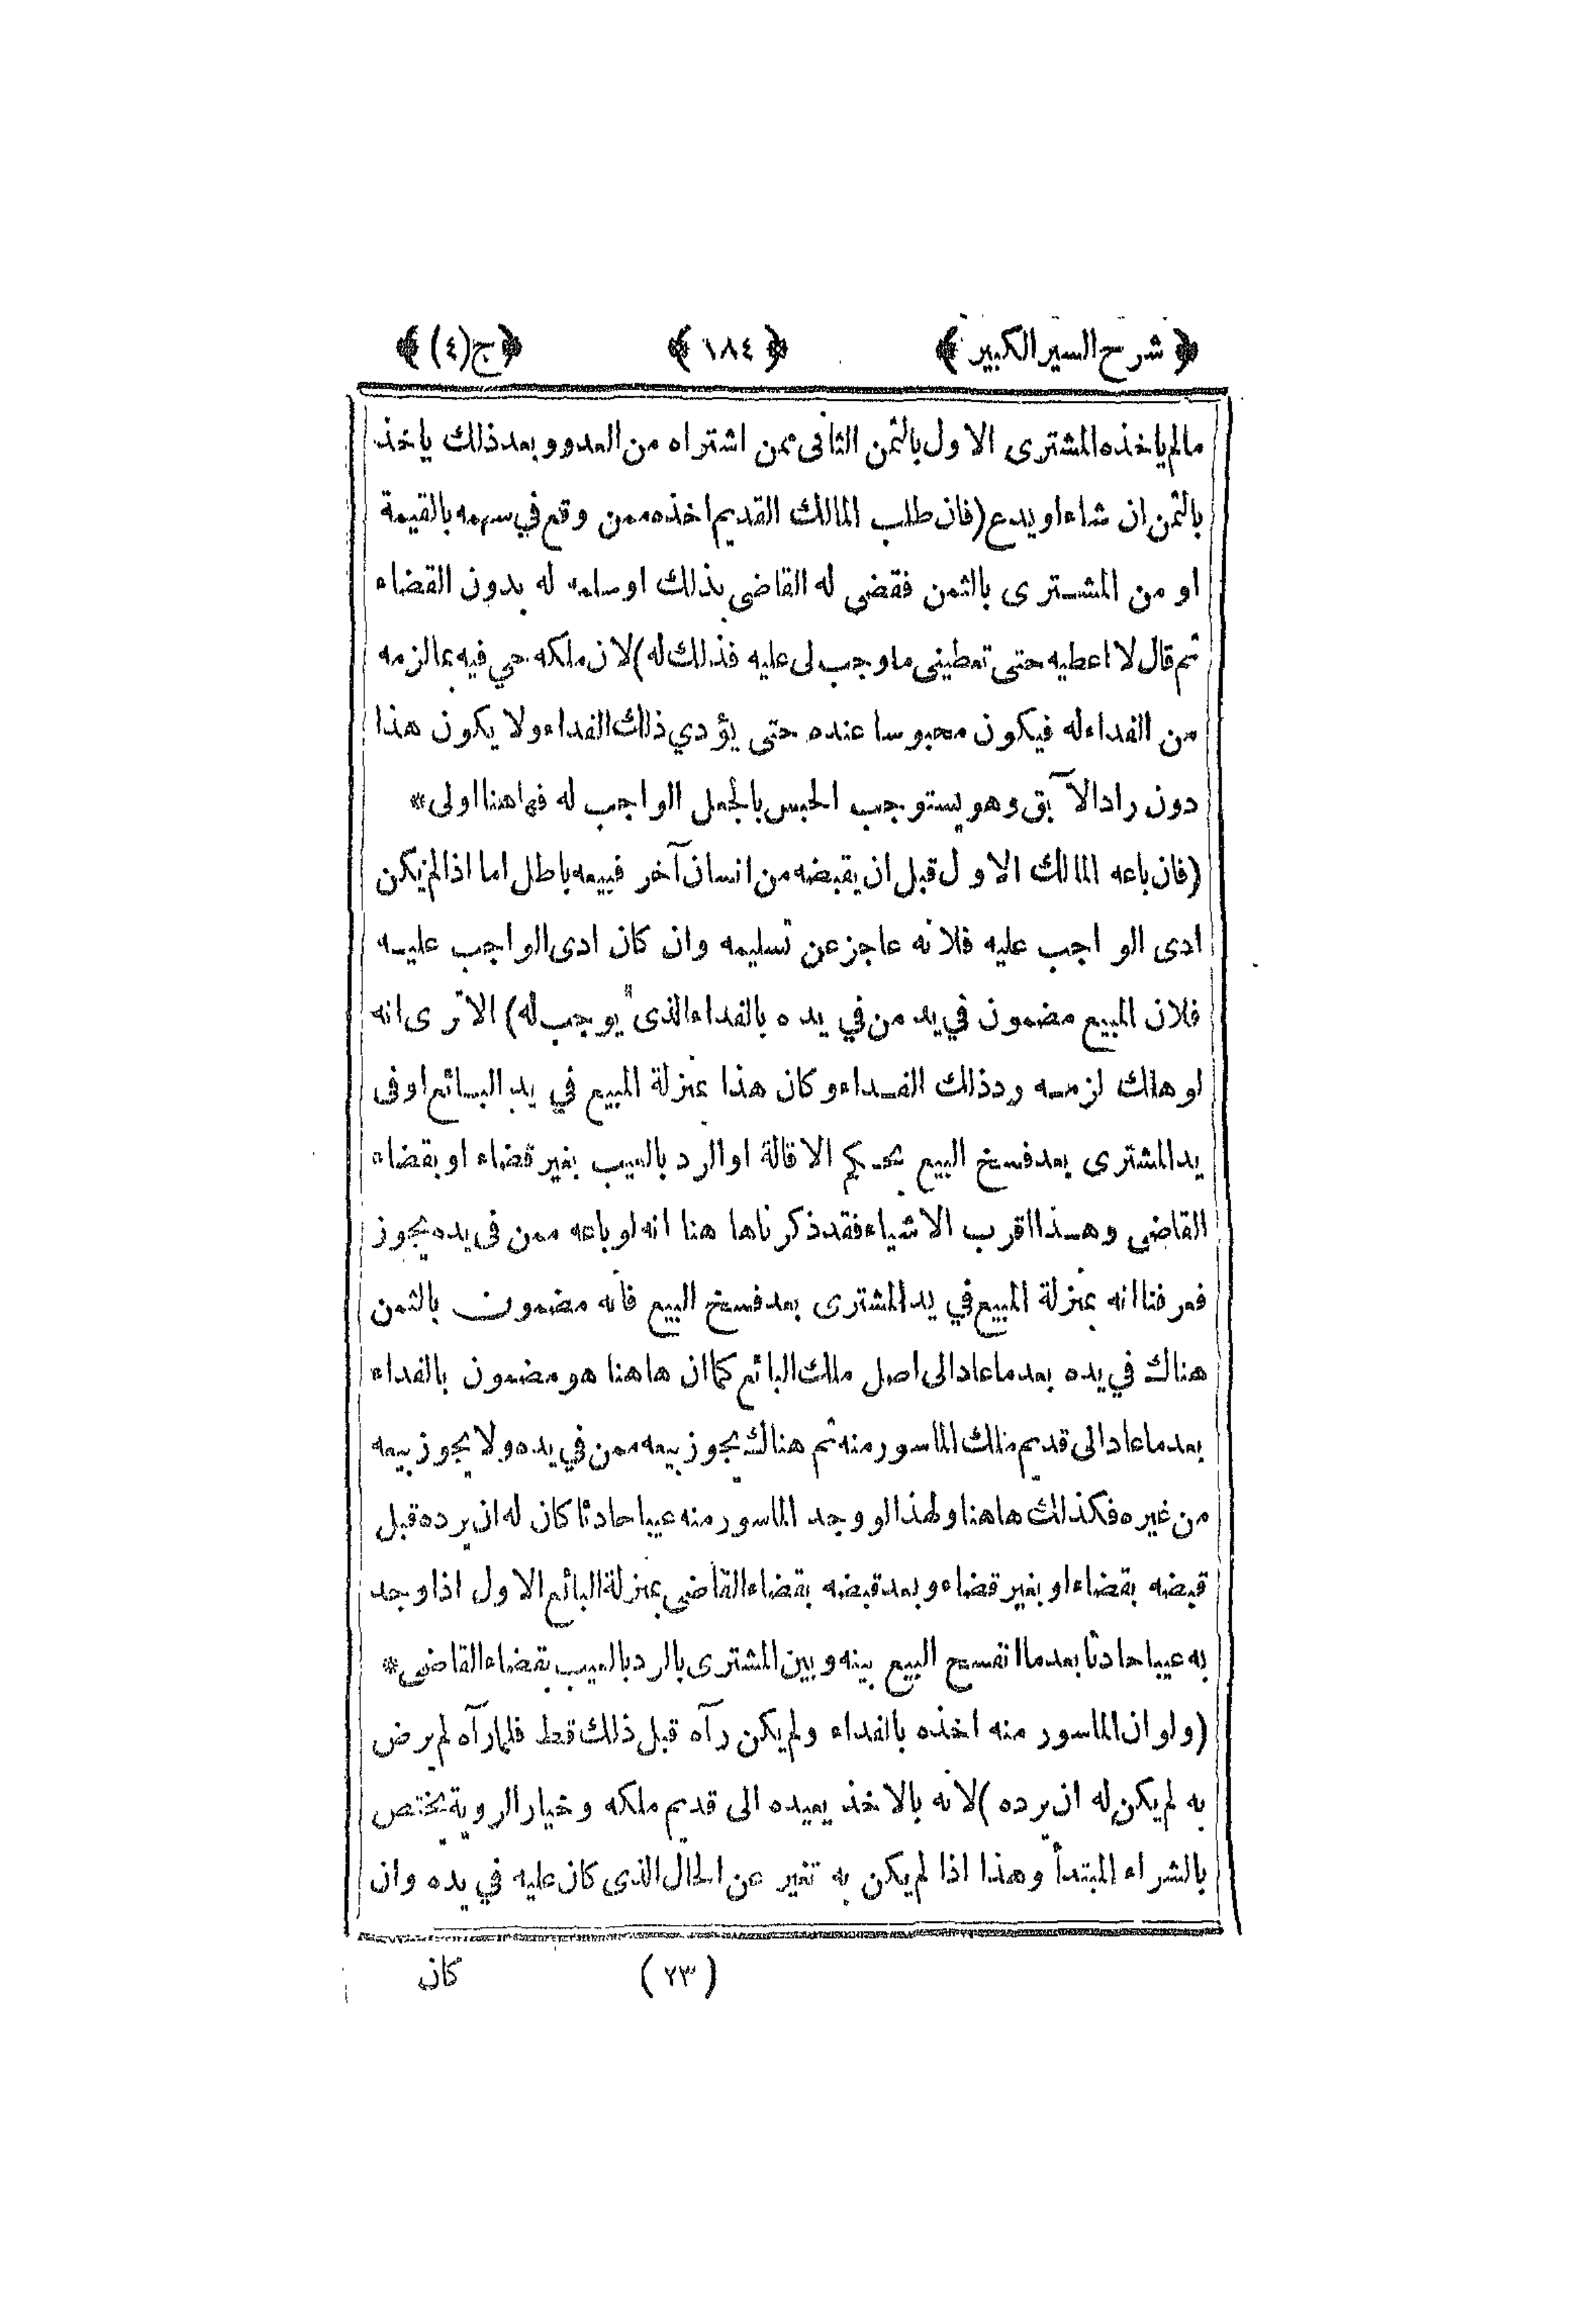 ﴿ شرح السير الكبير ﴾ ﴿ ١٨٤ ﴾ ﴿ ج (٤) ﴾
مالم ياخذه المشترى الاول بالثمن الثانى ممن اشتراه من العدو و بعد ذلك ياخذ
بالثمن ان شاء او يدع (فان طلب المالك القديم اخذه ممن وقع في سهمه بالقيمة
او من المشترى بالثمن فقضى له القاضى بذلك او سلمه له بدون القضاء
ثم قال لا اعطيه حتى تعطينى ما وجب لى عليه فذلك له) لان ملكه حي فيه بما لزمه
من الفداء له فيكون محبوسا عنده حتى يؤدي ذلك الفداء ولا يكون هذا
دون راد الآبق وهو يستوجب الحبس بالجعل الواجب له فهاهنا اولى *
(فان باعه المالك الاول قبل ان يقبضه من انسان آخر فبيعه باطل اما اذا لم يكن
ادى الواجب عليه فلانه عاجز عن تسليمه وان كان ادى الواجب عليه
فلان المبيع مضمون في يد من في يده بالفداء الذى يوجب له) الا ترى انه
لو هلك لزمه رد ذلك الفداء و كان هذا بمنزلة المبيع في يد البائع او فى
يد المشترى بعد فسخ البيع بحكم الاقالة او الرد بالعيب بغير قضاء او بقضاء
القاضى وهذا اقرب الاشياء فقد ذكرنا ها هنا انه لو باعه ممن فى يده يجوز
فعرفنا انه بمنزلة المبيع في يد المشترى بعد فسخ البيع فانه مضمون بالثمن
هناك في يده بعد ما عاد الى اصل ملك البائع كما ان هاهنا هو مضمون بالفداء
بعد ما عاد الى قديم ملك الماسور منه ثم هناك يجوز بيعه ممن في يده ولا يجوز بيعه
من غيره فكذلك هاهنا ولهذا لو وجد الماسور منه عيبا حادثا كان له ان يرده قبل
قبضه بقضاء او بغير قضاء و بعد قبضه بقضاء القاضى بمنزلة البائع الاول اذا وجد
به عيبا حادثا بعد ما انفسخ البيع بينه و بين المشترى بالرد بالعيب بقضاء القاضى *
(ولو ان الماسور منه اخذه بالفداء ولم يكن رآه قبل ذلك قط فلما رآه لم يرض
به لم يكن له ان يرده) لانه بالاخذ يعيده الى قديم ملكه وخيار الروية يختص
بالشراء المبتدأ وهذا اذا لم يكن به تغير عن الحال الذى كان عليه في يده وان
(٢٣) كان